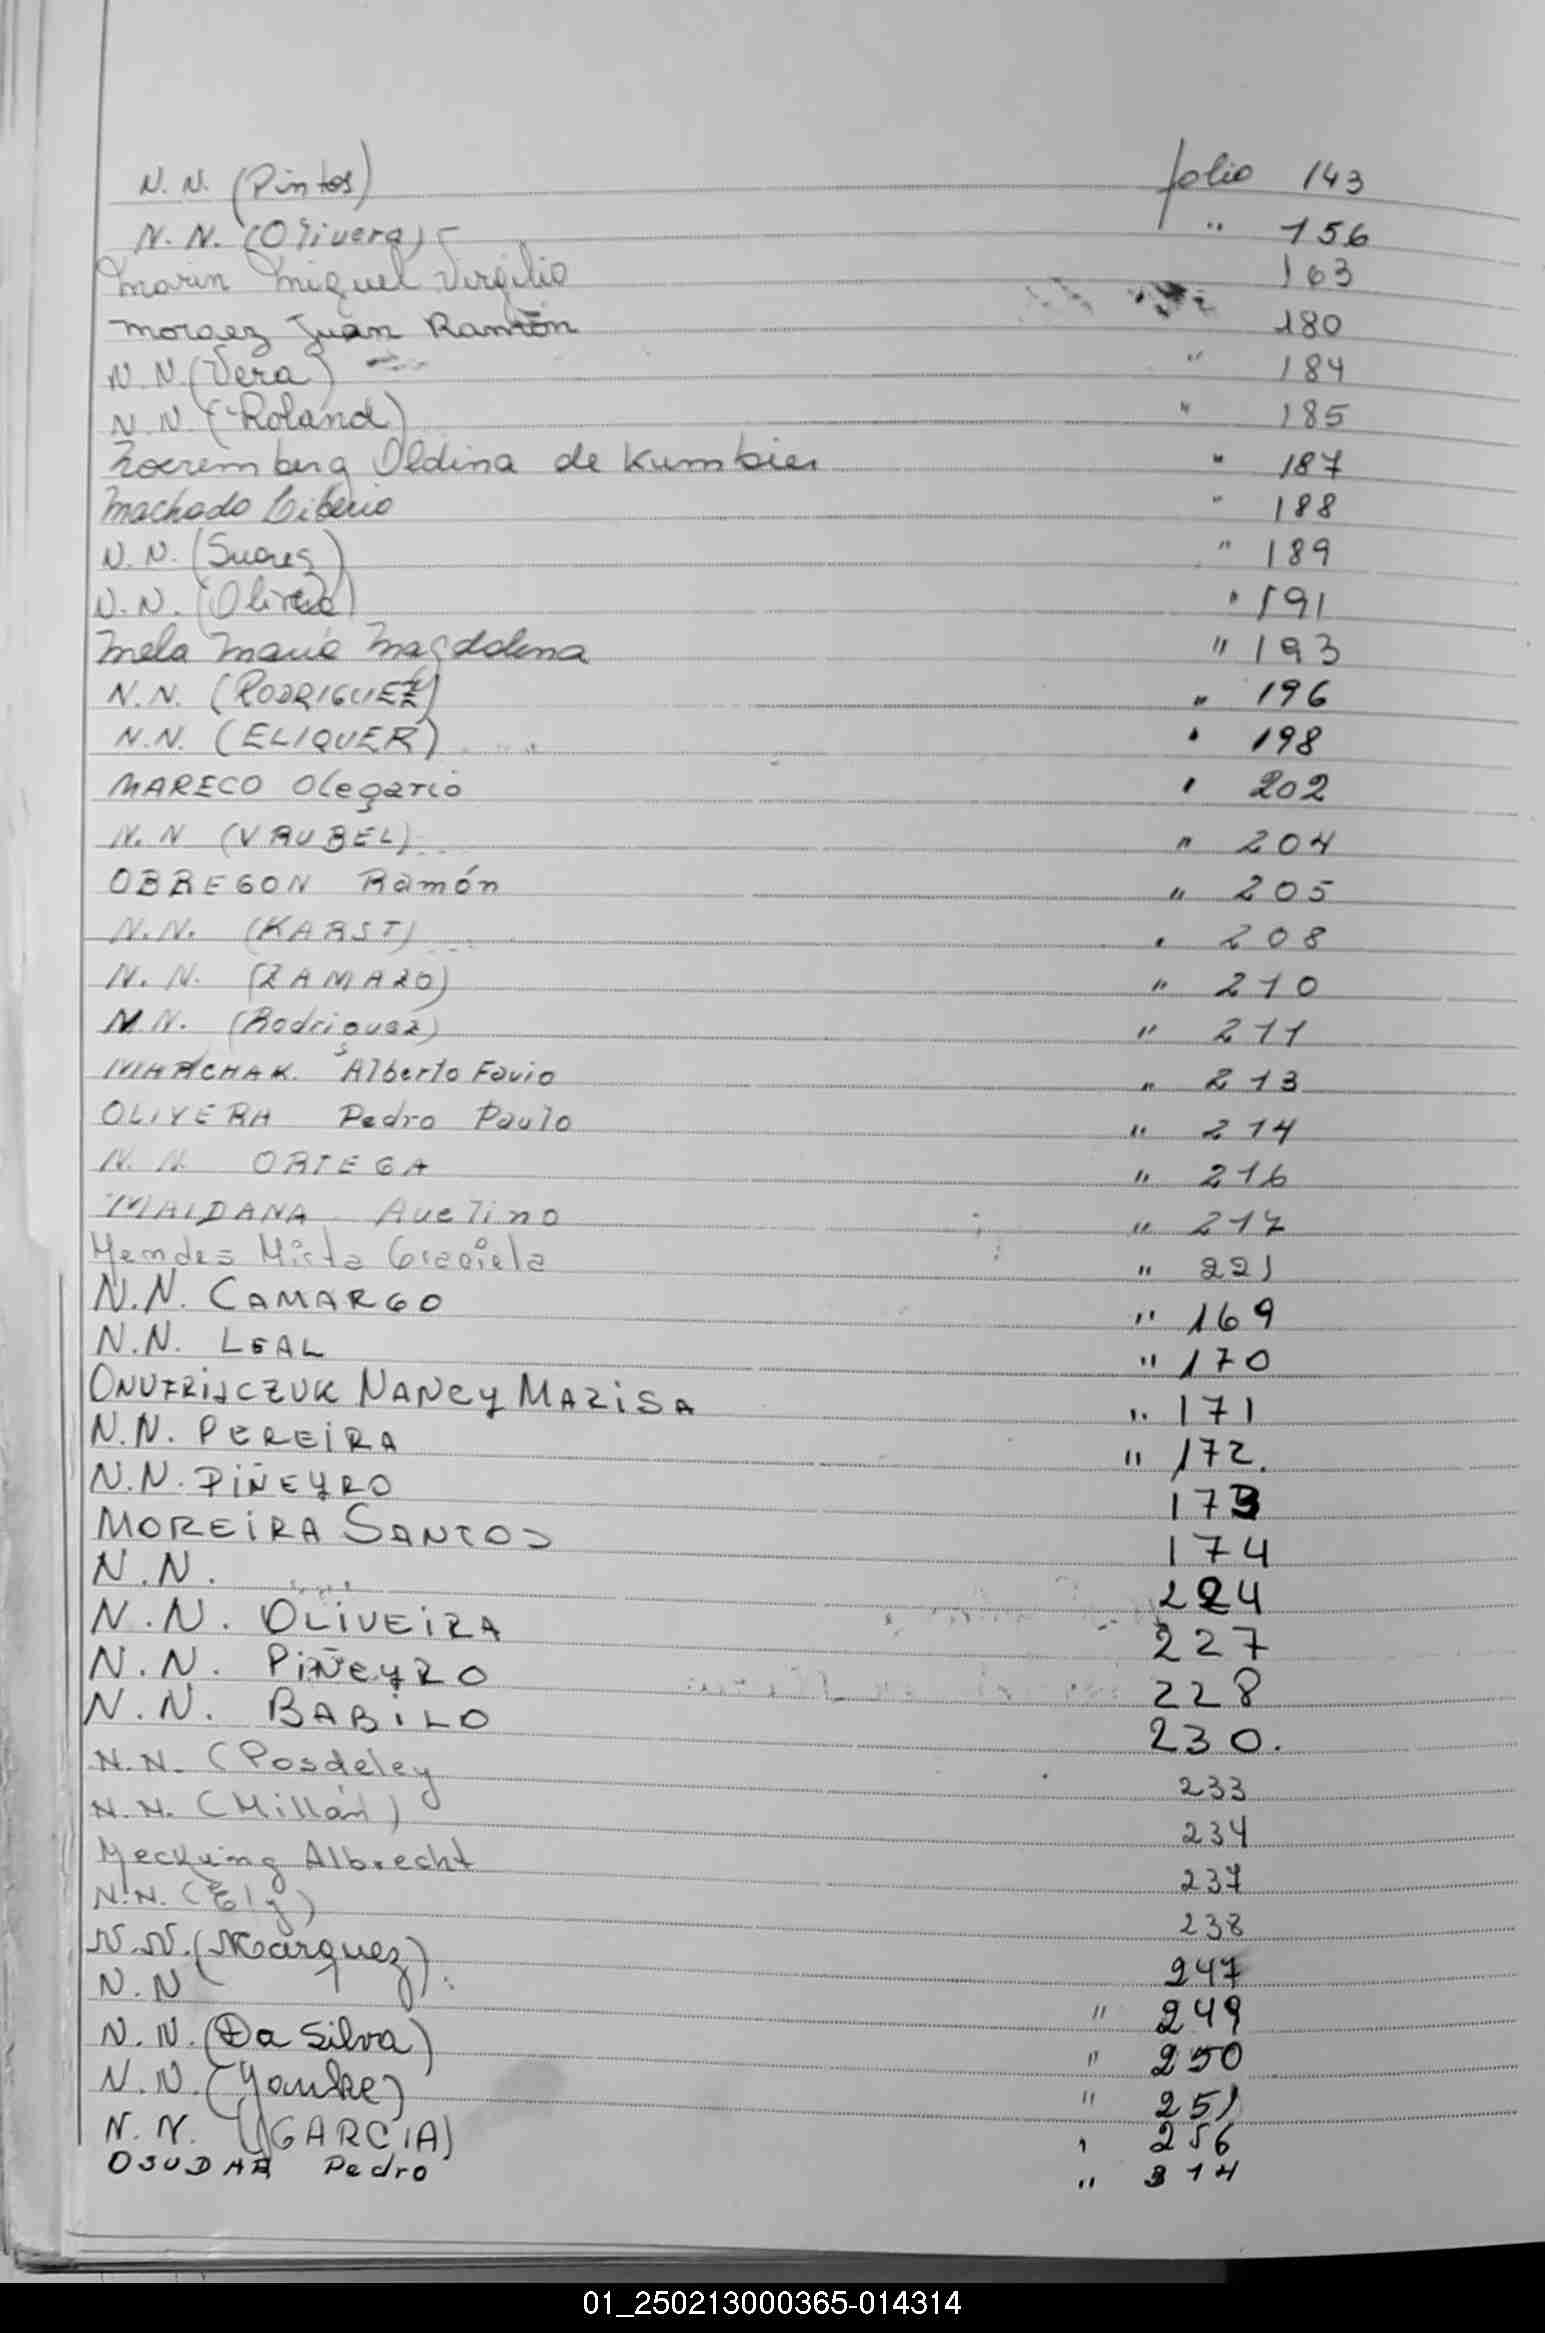 N. N. (Pintos) folio 143
N. N. (Olivera) - " 156
Marin Miguel Virgilio 163
Moraez Juan Ramón 180
N. N. (Vera) " 184
N. N. (Roland) " 185
Oldina de Kumbier " 187
Machado Liberio " 188
N. N. (Suarez) " 189
N. N. (Olivera) " 191
Mela Maria Magdalena " 193
N. N. (RODRIGUEZ) " 196
N. N. (ELIQUER) " 198
MARECO Olegario " 202
N. N (VRUBEL) " 204
OBREGON Ramón " 205
N. N. (KARST) " 208
N. N. (ZAMARO) " 210
N. N. (Rodriguez) " 211
MARCHAK Alberto Favio " 213
OLIVERA Pedro Paulo " 214
N. N. ORTEGA " 216
MAIDANA Avelino " 217
Mendes Mirta Graciela " 221
N. N. CAMARGO " 169
N. N. LEAL " 170
ONUFRIJCZUK NANCY MARISA " 171
N. N. PEREIRA " 172.
N. N. PIÑEYRO 173
MOREIRA SANTOS 174
N. N. 224
N. N. OLIVEIRA 227
N. N. PIÑEYRO 228
N. N. BABILO 230.
N. N. (Posdeley 233
N. N. (Millán) 234
Mecking Albrecht 237
N. N. (Ely) 238
N. N. (Marquez) 247
N. N " 249
N. N. (Da Silva) " 250
N. N. (Yanke) " 251
N. N. (GARCIA) " 256
OSUDAR Pedro " 314
01_250213000365-014314